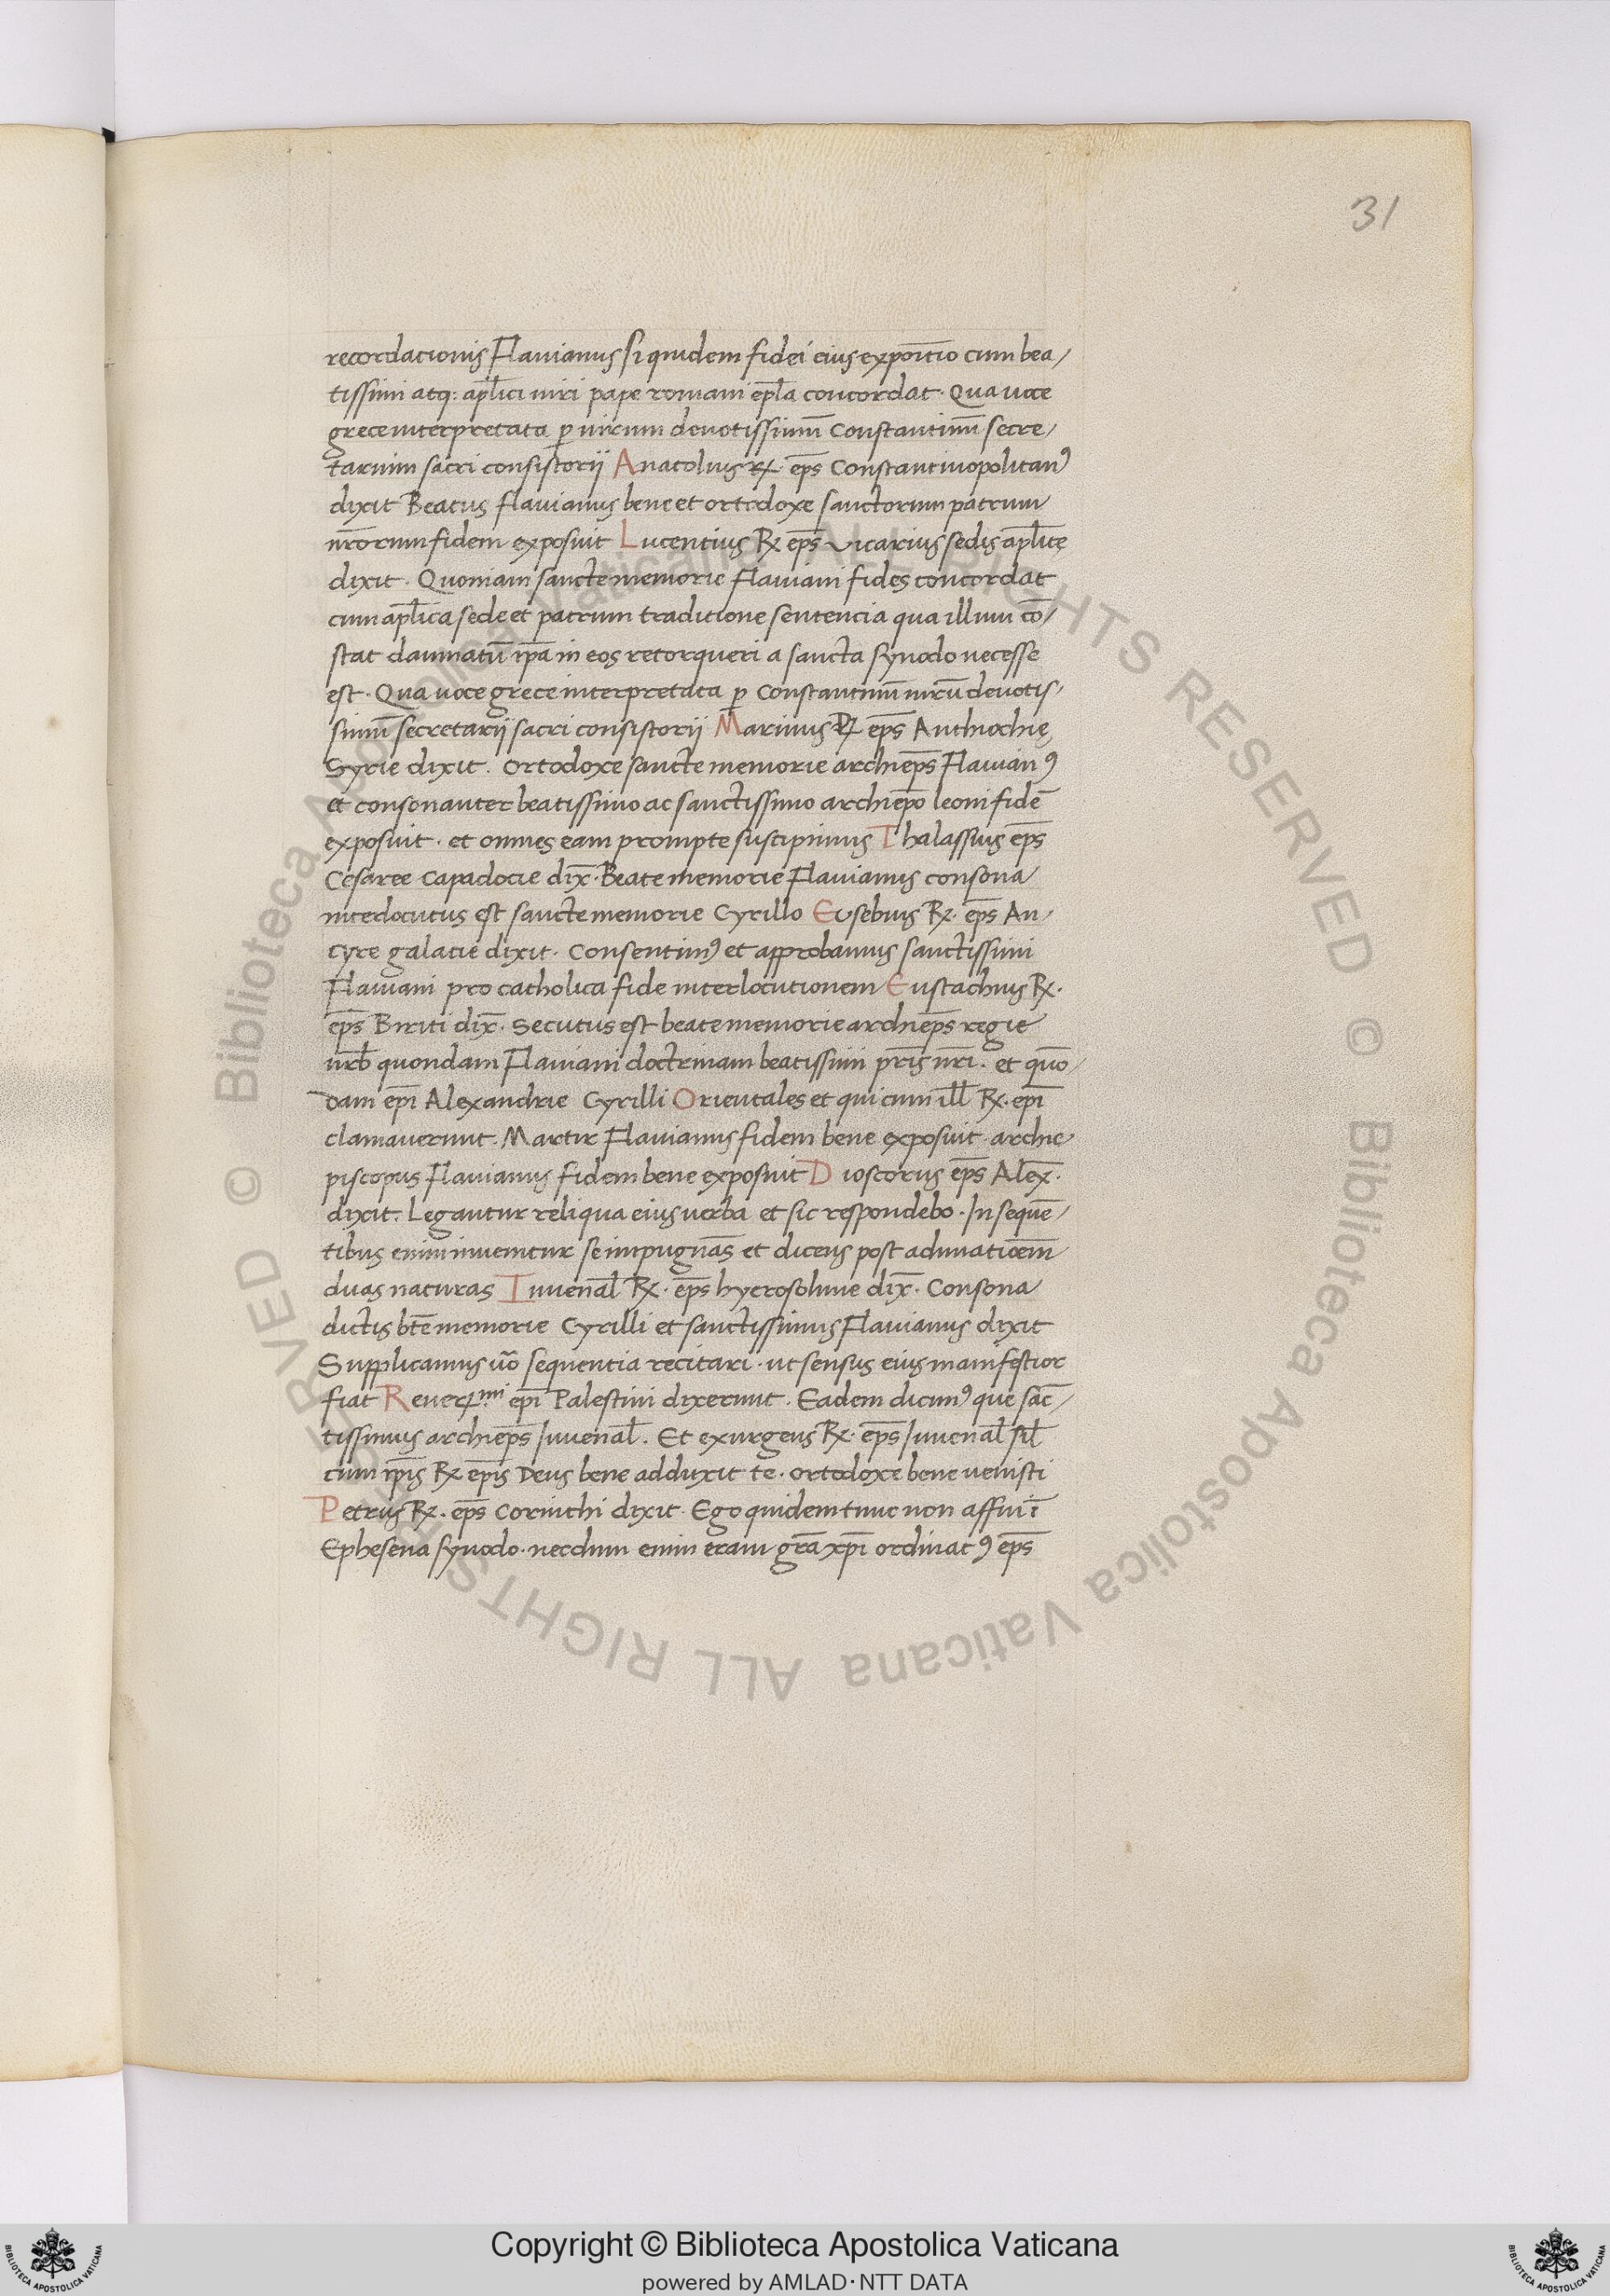 31
recordationis Flauianus siquidem fidei eius expoitio cum bea/
tissimi atq: apl̄ici uiri pape romani epl̄a concordat. Qua uoce
grece interpretata p̱ uirum deuotissimū Constantinū secre/
tarium sacri consistorij Anatolius R̨. ep̄s Constantinopolitanꝰ
dixit Beatus flauianus bene et ortodoxe sanctorum patrum
nr̄orum fidem exposuit Lucentius R̨ ep̄s vicarius sedis apl̄ice
dixit. Quoniam sancte memorie Flauiani fides concordat
cum apl̄ica sede et patrum traditione sentencia qua illum cō/
stat damnatū ip̄a in eos retorqueri a sancta synodo necesse
est. Qua uoce grece interpretata p̱ Constantinū uirū deuotis/
simū secretarij sacri consistorij Marinus R̨ ep̄s Anthiochię
Syrie dixit. Ortodoxe sancte memorie archiep̄s Flauianꝰ
et consonanter beatissimo ac sanctissimo archiep̄o leoni fidē
exposuit. et omnes eam prompte suscipimus Thalassius ep̄s
Cesaree Capadocie dix̄. Beate memorie Flauianus consona
interlocutus est sancte memorie Cyrillo Eusebius R̨. ep̄s An/
cyre galatie dixit. Consentimꝰ et approbamus sanctissimi
Flauiani pro catholica fide interlocutionem Eustachius R̨.
ep̄s Biriti dix̄. Secutus est beate memorie archiep̄s regie
urb̄ quondam Flauiani doctrinam beatissimi pr̄is nr̄i. et quō
dam ep̄i Alexandrie Cyrilli Orientales et qui cum ill̄ R̨. ep̄i
clamauerunt. Martir Flauianus fidem bene exposuit. archie
piscopus Flauianus fidem bene exposuit Dioscorus ep̄s Alex̄.
dixit. Legantur reliqua eius uerba et sic respondebo. In sequē/
tibus enim inuenitur se impugnās et dicens post adunatiōem
duas naturas Iuuenal̄ R̨. ep̄s hyerosolime dix̄. Consona
dictis bt̄e memorie Cyrilli et sanctissimus Flauianus dixit
Supplicamus uō sequentia recitari. ut sensus eius manifestior
fiat Reuerꝝmi ep̄i Palestini dixerunt. Eadem dicimꝰ que sāc/
tissimus archiep̄s Iuuenal̄. Et exurgens R̨. ep̄s Iuuenal̄ sil̄
cum ip̄is R̨ ep̄is Deus bene adduxit te. ortodoxe bene uenisti
Petrus R̨. ep̄s Corinthi dixit. Ego quidem tunc non affui ī
Ephesena synodo. necdum enim eram gr̄a xp̄i ordinatꝰ ep̄s
© Biblioteca Apostolica Vaticana ALL RIGHTS RESERVED © Biblioteca Apostolica Vaticana ALL RIGHTS RESERVED
Copyright © Biblioteca Apostolica Vaticana
powered by AMLAD·NTT DATA
BIBLIOTECA APOSTOLICA VATICANA
BIBLIOTECA APOSTOLICA VATICANA